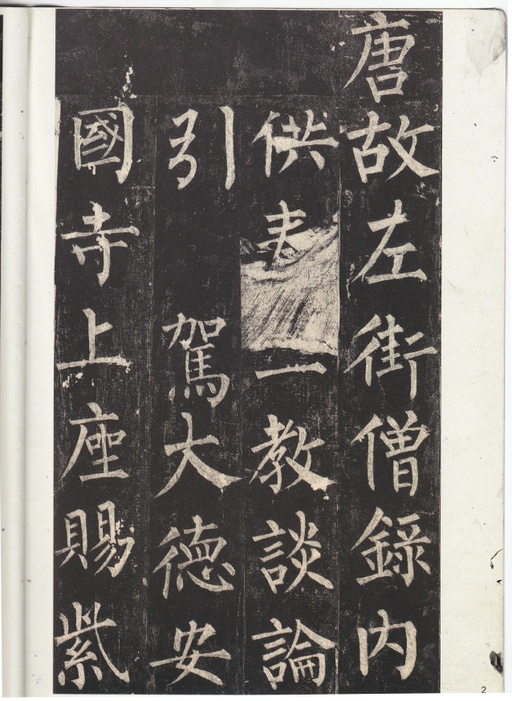 唐故左街僧錄內
供教談論
引駕大德安
國寺上座賜紫
2